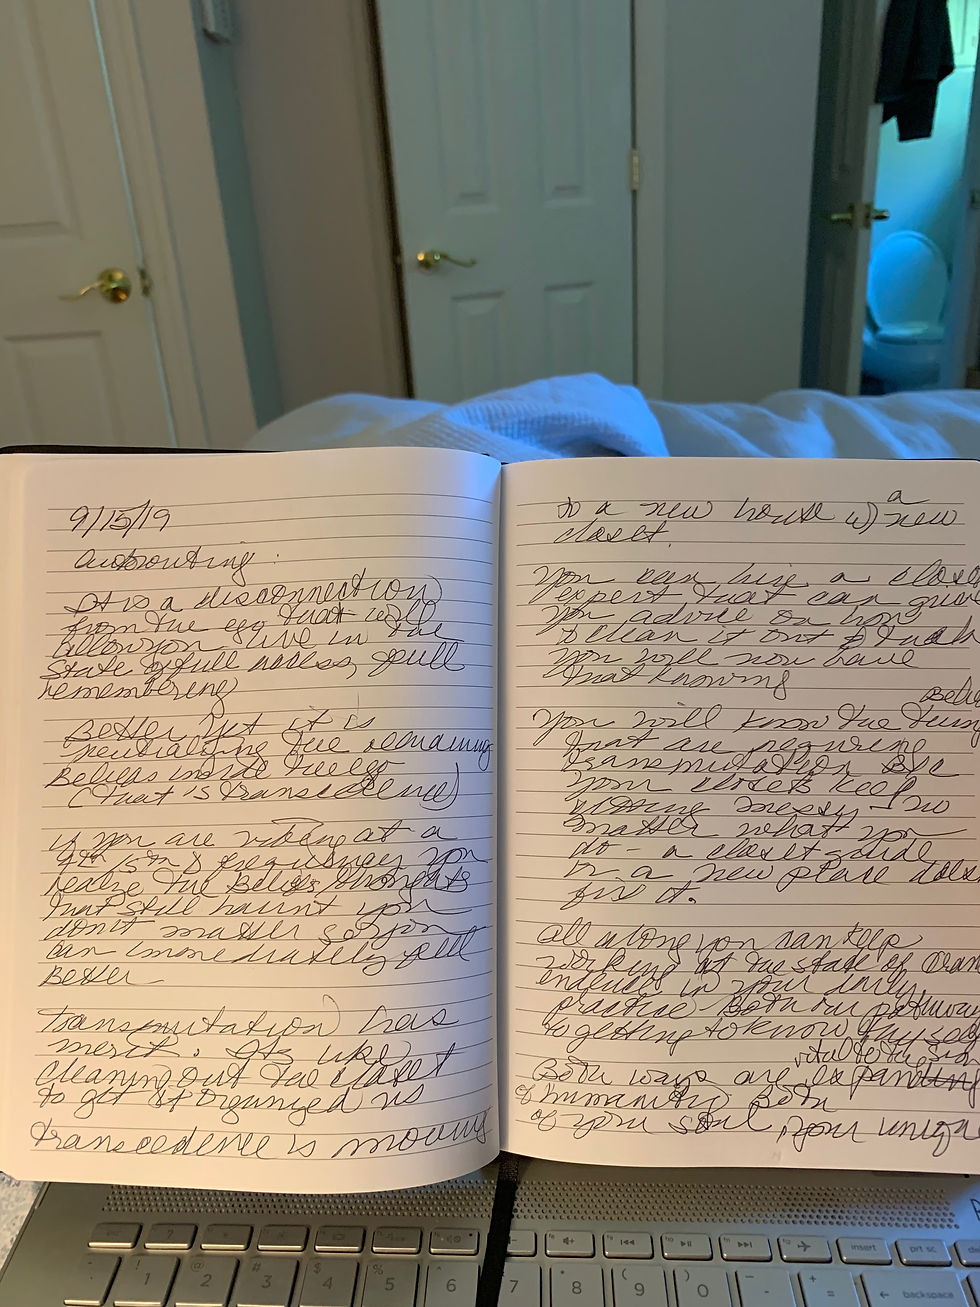 9/15/19
It is a disconnection
from the ego that will
allow you live in the
state of full access, full
remembering
Better yet it is
neutralizing the remaining
Beliefs inside the ego
(that is transcedence)
if you are vibing at a
4th 5th & frequency you
realize the Beliefs thoughts
that still haunt you
don't matter so you
can immediately feel
Better
transmutation has
merit. Its like
cleaning out the closet
to get it organized vs
transcedence is moving
to a new house w) a new
closet.
you can hire a closet
expert that can give
you advice on how
to clean it out &
you will now have
that knowing
you will know the
that are requiring
transmutation B/c
your closets keep
getting messy no
matter what you
do - a closet
in a new place does
fix it.
all along you can keep
working at the state of
in your daily
practice Both
to getting to know
Both ways are
of humanity Both
of your soul, your
esc
! 1
@ 2
# 3
$ 4
% 5
^ 6
7
* 8
( 9
) 0
- -
+ =
insert
prt sc
backspace